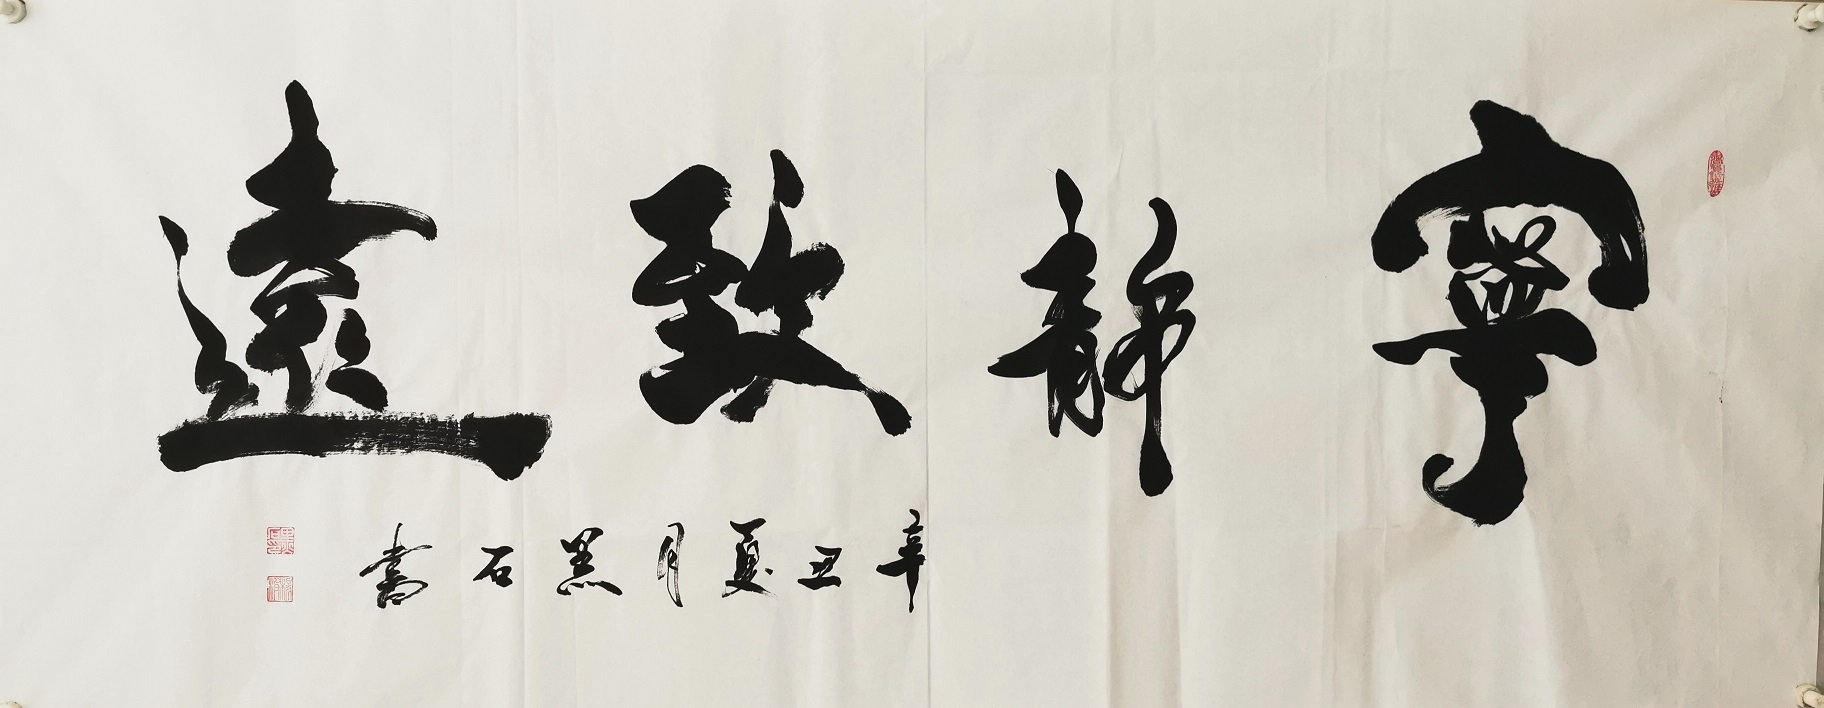 寧静致遠
辛丑夏月黑石書